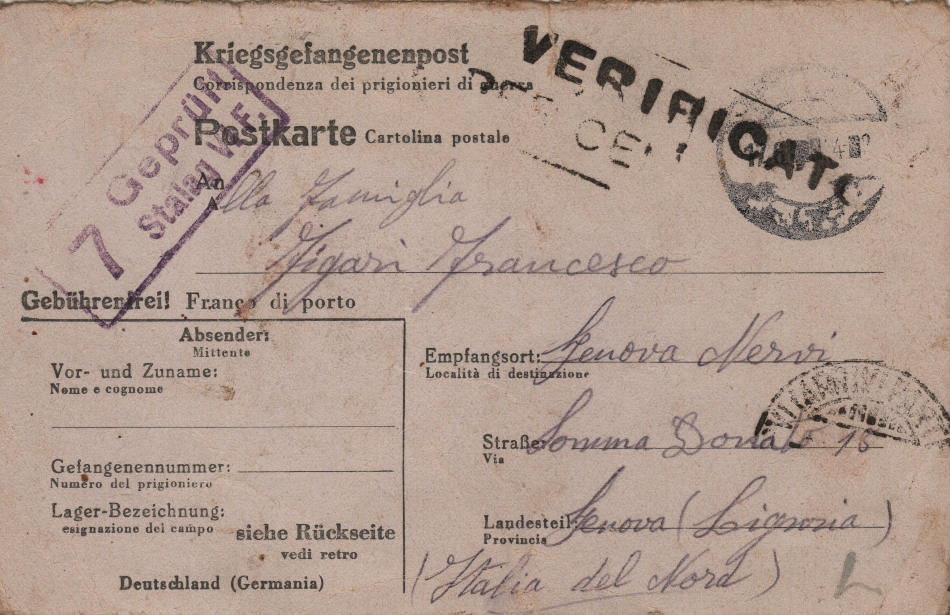 Kriegsgefangenenpost
Corrispondenza dei prigionieri di guerra
Postkarte Cartolina postale
VERIFICATO
7 Geprüft
Stalag
An
A
Alla Famiglia
Figari Francesco
Gebührenfrei! Franco di porto
Absender:
Mittente
Vor- und Zuname:
Nome e cognome
Gefangenennummer:
Numero del prigioniero
Lager-Bezeichnung:
esignazione del campo
siehe Rückseite
vedi retro
Deutschland (Germania)
Empfangsort: Genova Nervi
Località di destinazione
Straße: Somma Donato 15
Via
Landesteil: Genova (Liguria)
Provincia
(Italia del Nord)